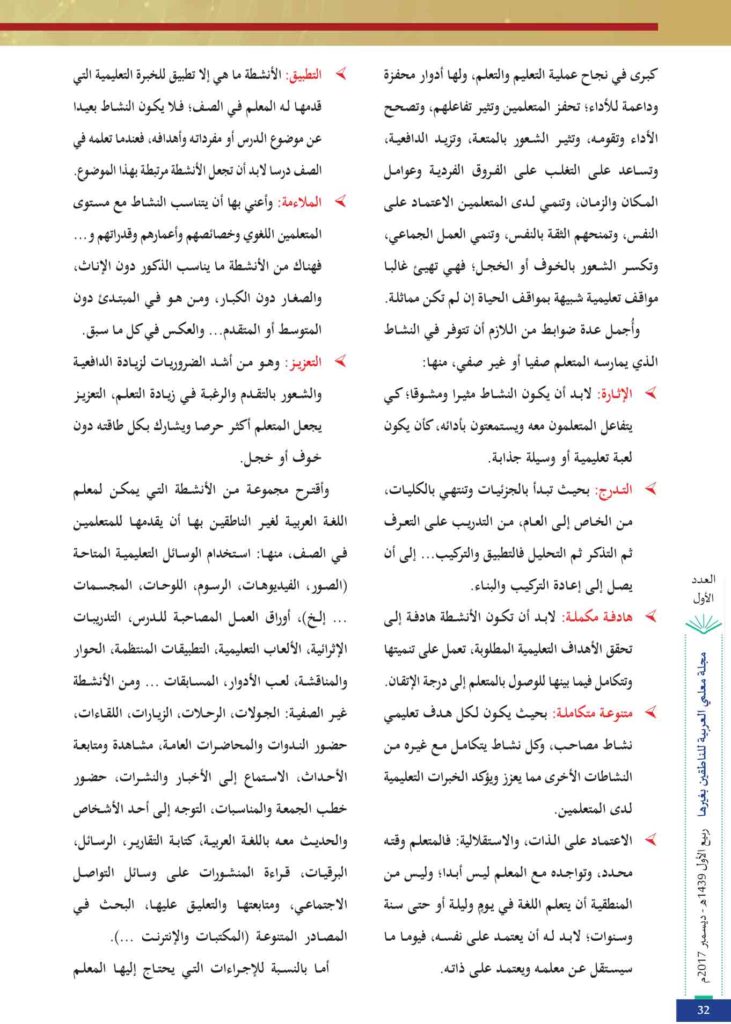 كبرى في نجاح عملية التعليم والتعلم، ولها أدوار محفزة
وداعمة للأداء؛ تحفز المتعلمين وتثير تفاعلهم، وتصحح
الأداء وتقومه، وتثير الشعور بالمتعة، وتزيد الدافعية،
وتساعد على التغلب على الفروق الفردية وعوامل
المكان والزمان، وتنمي لدى المتعلمين الاعتماد على
النفس، وتمنحهم الثقة بالنفس، وتنمي العمل الجماعي،
وتكسر الشعور بالخوف أو الخجل؛ فهي تهيئ غالبا
مواقف تعليمية شبيهة بمواقف الحياة إن لم تكن مماثلة.
وأُجمل عدة ضوابط من اللازم أن تتوفر في النشاط
الذي يمارسه المتعلم صفيا أو غير صفي، منها:
الإثارة: لابد أن يكون النشاط مثيرا ومشوقا؛ كي
يتفاعل المتعلمون معه ويستمتعون بأدائه، كأن يكون
لعبة تعليمية أو وسيلة جذابة.
التدرج: بحيث تبدأ بالجزئيات وتنتهي بالكليات،
من الخاص إلى العام، من التدريب على التعرف
ثم التذكر ثم التحليل فالتطبيق والتركيب... إلى أن
يصل إلى إعادة التركيب والبناء.
هادفة مكملة: لابد أن تكون الأنشطة هادفة إلى
تحقق الأهداف التعليمية المطلوبة، تعمل على تنميتها
وتتكامل فيما بينها للوصول بالمتعلم إلى درجة الإتقان.
متنوعة متكاملة: بحيث يكون لكل هدف تعليمي
نشاط مصاحب، وكل نشاط يتكامل مع غيره من
النشاطات الأخرى مما يعزز ويؤكد الخبرات التعليمية
لدى المتعلمين.
الاعتماد على الذات، والاستقلالية: فالمتعلم وقته
محدد، وتواجده مع المعلم ليس أبدا؛ وليس من
المنطقية أن يتعلم اللغة في يوم وليلة أو حتى سنة
وسنوات؛ لابد له أن يعتمد على نفسه، فيوما ما
سيستقل عن معلمه ويعتمد على ذاته.
التطبيق: الأنشطة ما هي إلا تطبيق للخبرة التعليمية التي
قدمها له المعلم في الصف؛ فلا يكون النشاط بعيدا
عن موضوع الدرس أو مفرداته وأهدافه، فعندما تعلمه في
الصف درسا لابد أن تجعل الأنشطة مرتبطة بهذا الموضوع.
الملاءمة: وأعني بها أن يتناسب النشاط مع مستوى
المتعلمين اللغوي وخصائصهم وأعمارهم وقدراتهم و...
فهناك من الأنشطة ما يناسب الذكور دون الإناث،
والصغار دون الكبار، ومن هو في المبتدئ دون
المتوسط أو المتقدم... والعكس في كل ما سبق.
التعزيز: وهو من أشد الضروريات لزيادة الدافعية
والشعور بالتقدم والرغبة في زيادة التعلم، التعزيز
يجعل المتعلم أكثر حرصا ويشارك بكل طاقته دون
خوف أو خجل.
وأقترح مجموعة من الأنشطة التي يمكن لمعلم
اللغة العربية لغير الناطقين بها أن يقدمها للمتعلمين
في الصف، منها: استخدام الوسائل التعليمية المتاحة
(الصور، الفيديوهات، الرسوم، اللوحات، المجسمات
... إلخ)، أوراق العمل المصاحبة للدرس، التدريبات
الإثرائية، الألعاب التعليمية، التطبيقات المنتظمة، الحوار
والمناقشة، لعب الأدوار، المسابقات ... ومن الأنشطة
غير الصفية: الجولات، الرحلات، الزيارات، اللقاءات،
حضور الندوات والمحاضرات العامة، مشاهدة ومتابعة
الأحداث، الاستماع إلى الأخبار والنشرات، حضور
خطب الجمعة والمناسبات، التوجه إلى أحد الأشخاص
والحديث معه باللغة العربية، كتابة التقارير، الرسائل،
البرقيات، قراءة المنشورات على وسائل التواصل
الاجتماعي، ومتابعتها والتعليق عليها، البحث في
المصادر المتنوعة (المكتبات والإنترنت ...).
أما بالنسبة للإجراءات التي يحتاج إليها المعلم
العدد
الأول
مجلة معلمي العربية للناطقين بغيرها ربيع الأول 1439هـ - ديسمبر 2017م
32